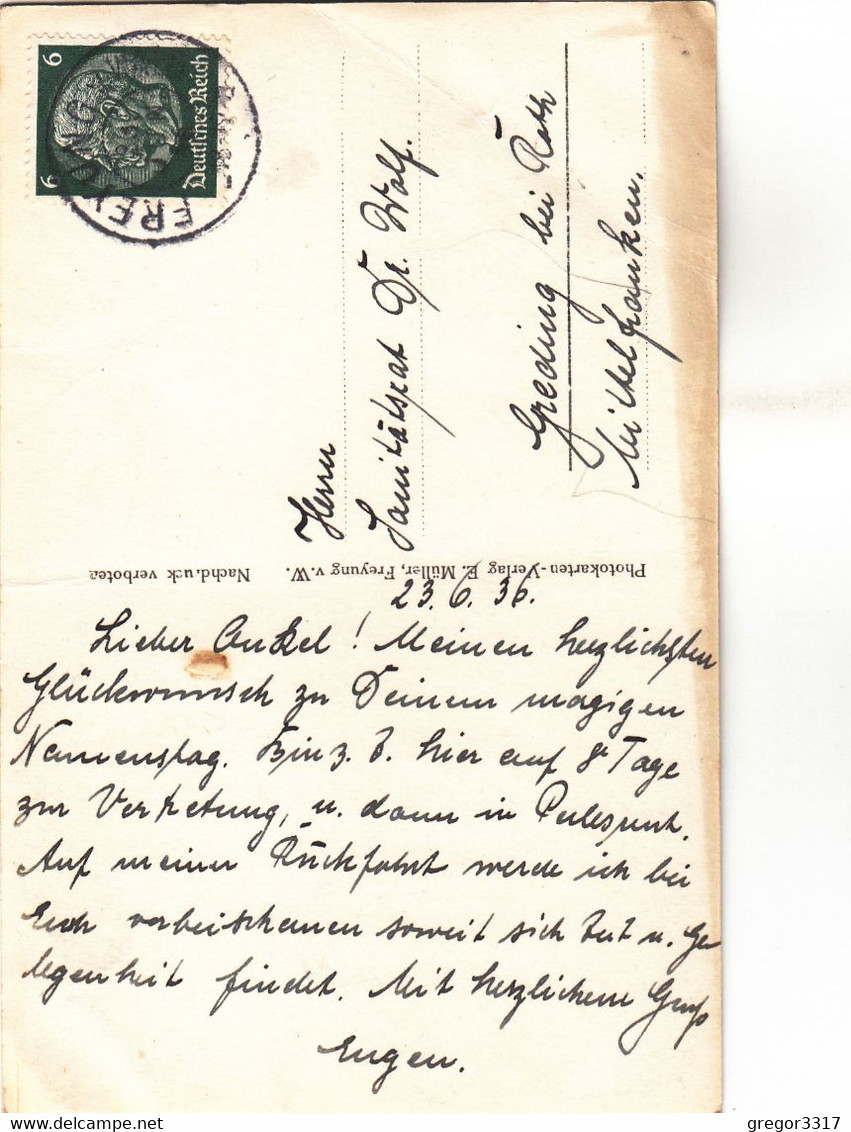 Deutsches Reich
6
6
FREYUNG
Herrn
Sanitätsrat Dr. Wolf.
Greding bei Roth
Mittelfranken.
Photokarten-Verlag E. Müller, Freyung v.W.
Nachdruck verboten
23. 6. 36.
Lieber Onkel! Meinen herzlichsten
Glückwunsch zu Deinem
Namenstag. Bin z. Z. hier auf 8 Tage
zur Vertretung, u. dann in Perlesreut.
Auf meiner Rückfahrt werde ich bei
Euch vorbeischauen soweit sich Zeit u. Ge
legenheit findet. Mit herzlichem Gruß
Eugen.
gregor3317